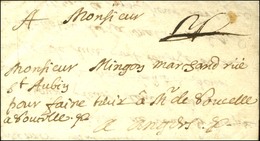 A Monsieur
Monsieur Mingon marchand rüe
St Aubin
pour faire tenir a Mr de Voucelle
a Voucelle
a Angers